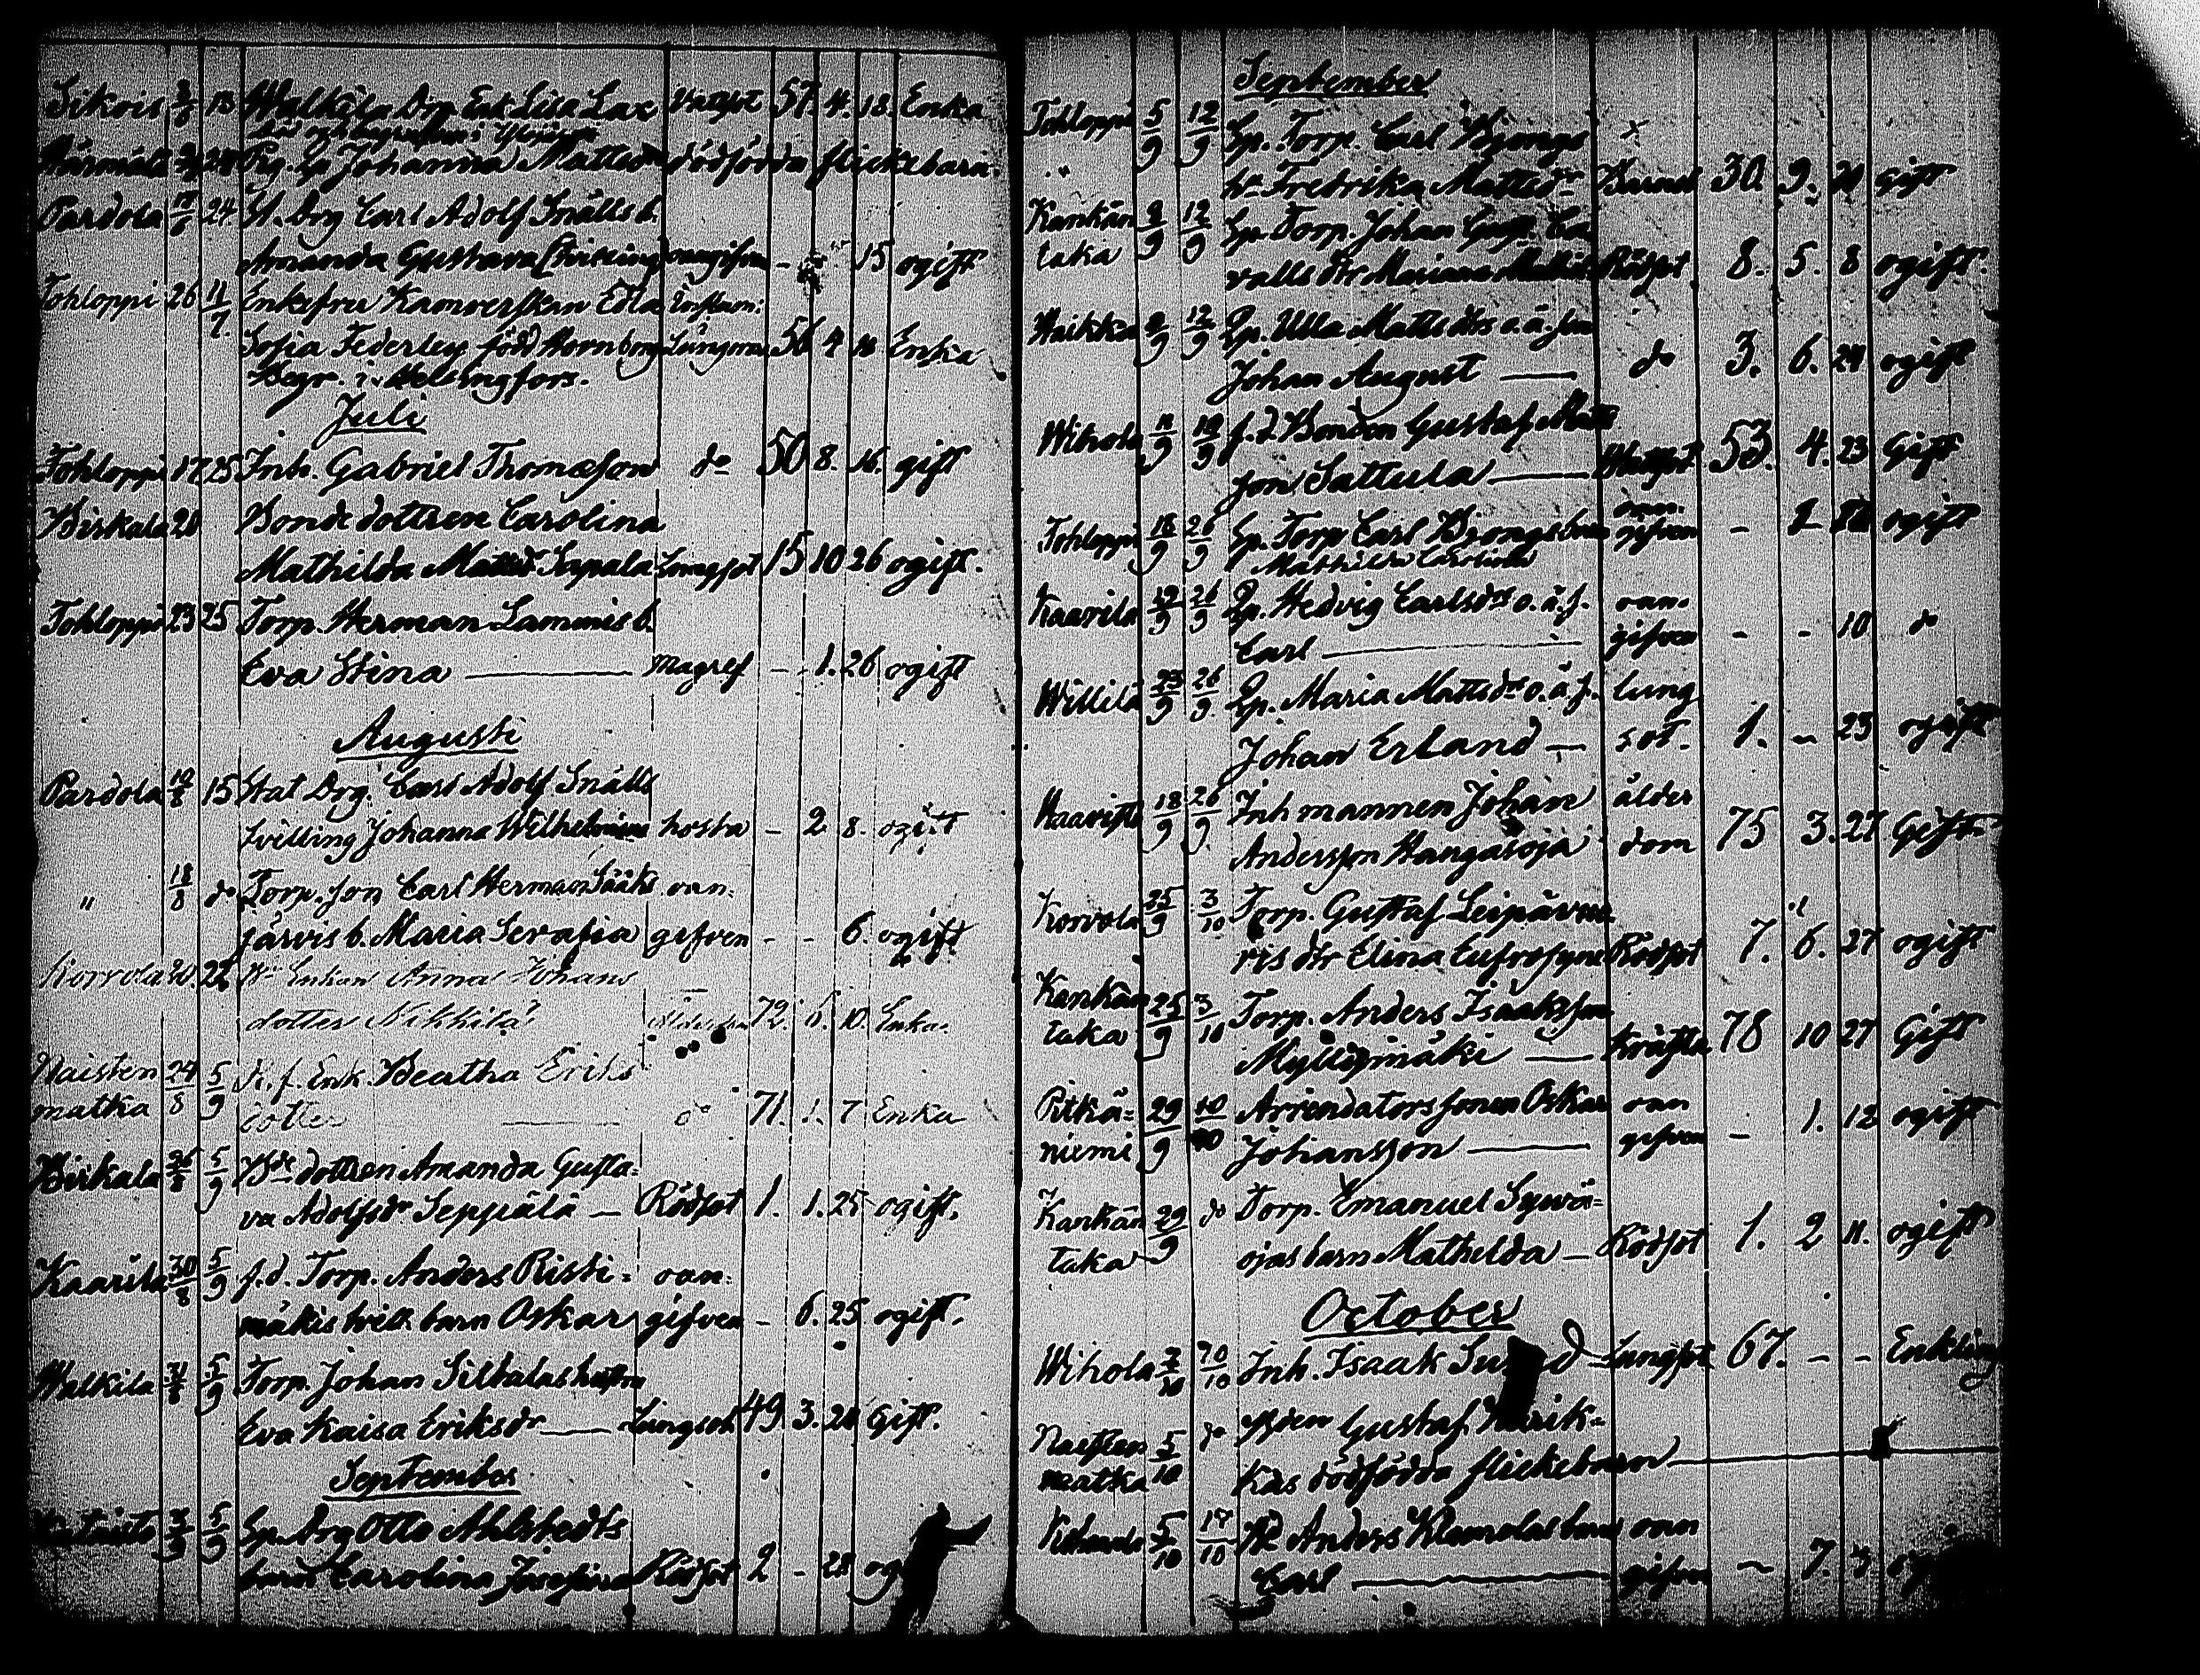 Sikois 13 Walkila Drg Enk Lisa Lax Vattsot 57. 4. 18. Enka
Pig. Johanna Mattsdr dödfödda flickebarn
Pardola 24. St. Drg Carl Adolf Snälls b.
Amanda Gustava Christina oangifven - 15 ogift
Tohloppi 26 11/7 Enkefru Kamrerskan Edla Inflam:
Sofia Federley född Hornborg Lungorna 56 4 Enka
Begr. i Helsingfors.
Juli
Tohloppi 17 25 Inh. Gabriel Thomasson do 50 8. 16. gift
Birkala 20 Bondedottren Carolina
Mathilda Mattsdr Sapala Lungsot 15 10 26 ogift.
Tohloppi 23 25 Torp. Herman Lammis b.
Eva Stina — Magref - - 1. 26 ogift
Augusti
Pardola 10/8 15 Stat Drg. Carl Adolf Snälls
tvilling Johanna Wilhelmina hosta - 2 8. ogift
" 18/8 do Torp. son Carl Herman Sääks oan:
järvis b. Maria Serafia gifven - - 6. ogift
Korvola 20. 22 Enkan Anna Johans
dotter Nikkilä 72. 6. 10. Enka.
Naisten 24/8 5/9 K. f. Enk. Beatha Eriks
matka dotter — do 71. 1. 7 Enka
Birkala 26/8 5/9 Bde dottren Amanda Gusta=
va Adolfsdr Seppälä — Rödsot 1. 1. 25 ogift.
Kaarila 30/8 5/9 f. d. Torp. Anders Risti= oan=
mäkis tvill. barn Oskar gifven - 6. 25 ogift.
Walkila 31/8 5/9 Torp. Johan Siltalas hustru
Eva Kaisa Eriksdr — Lungsot 49 3. 28 Gift.
September
3/9 5/9 Sp. Drg Otto Ahlstedts
barn Carolina Josefina Rödsot 2 - 28
September
Tohloppi 5/9 12/9 Sp. Torp. Carl Bjongs
" h. Fredrika Mattsdr Barnsb 30. 9. 20 Gift
Kankän 9/9 12/9 Sp. Torp. Johan
taka valls dtr Rödsot 8. 5. 8 ogift.
Waikka 9/9 12/9 Pp. Ulla Mattsdrs o. ä. son
Johan August — do 3. 6. 24 ogift
Wihola 11/9 19/9 f. d. Bonden Gustaf Matts
son Sattula — Wattsot 53. 4. 23 Gift
Tohloppi 18/9 26/9 Sp. Torp Carl Bjongs barn oan
Mathilda Carolina gifven - ogift
Kaarila 19/9 26/9 Pp. Hedvig Carlsdrs o. ä. s. oan=
Carl — gifven - - 10 do
Willilä 23/9 26/9 Pp. Maria Mattsdrs o. ä. s. lung
Johan Erland — sot. 1. - 23 ogift
Haavisto 18/9 26/9 Inh mannen Johan ålder
Andersson Hangasoja dom 75 3. 27 Gift.
Korvola 25/9 3/10 Torp. Gustaf Leipäva
ris dtr Elina Eufrosyne Rödsot 7. 6. 27 ogift
Kankän 25/9 3/10 Torp. Anders Isaaksson
taka Myllymäki — Kräfta 78 10 27 Gift
Pitkä= 29/9 10/10 Arrendators sonen Oskar oan
niemi Johansson — gifven - 1. 12 ogift
Kankän 29/9 do Torp. Emanuel Sywä=
taka ojas barn Mathilda — Rödsot 1. 2 11. ogift
October
Wihola 2/10 10/10 Inh. Isaak Lungsot 67. - - Enkling
Naisten 5/10 do Bden Gustaf
matka käs dödfödda flickebarn —
5/10 17/10 Bd Anders barn oan
Carl — gifven - 7. 7.